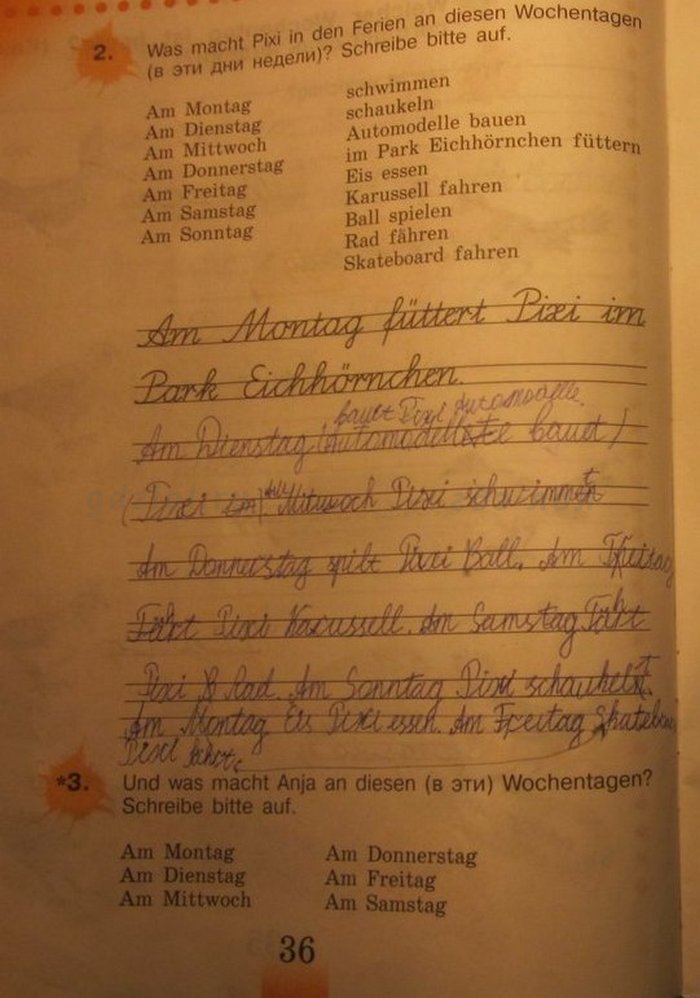 2. Was macht Pixi in den Ferien an diesen Wochentagen
(в эти дни недели)? Schreibe bitte auf.
Am Montag
Am Dienstag
Am Mittwoch
Am Donnerstag
Am Freitag
Am Samstag
Am Sonntag
schwimmen
schaukeln
Automodelle bauen
im Park Eichhörnchen füttern
Eis essen
Karussell fahren
Ball spielen
Rad fahren
Skateboard fahren
Am Montag füttert Pixi im
Park Eichhörnchen.
bauet Pixi Automodelle.
Am Dienstag bauet
Pixi im Am Mittwoch Pixi schwimmt
Am Donnerstag spilt Pixi Ball. Am Freitag
Fährt Pixi Karussell. Am Samstag Fährt
Pixi Rad. Am Sonntag Pixi schaukelt.
Am Montag Eis Pixi essen. Am Freitag
Pixi
*3. Und was macht Anja an diesen (в эти) Wochentagen?
Schreibe bitte auf.
Am Montag
Am Dienstag
Am Mittwoch
Am Donnerstag
Am Freitag
Am Samstag
36